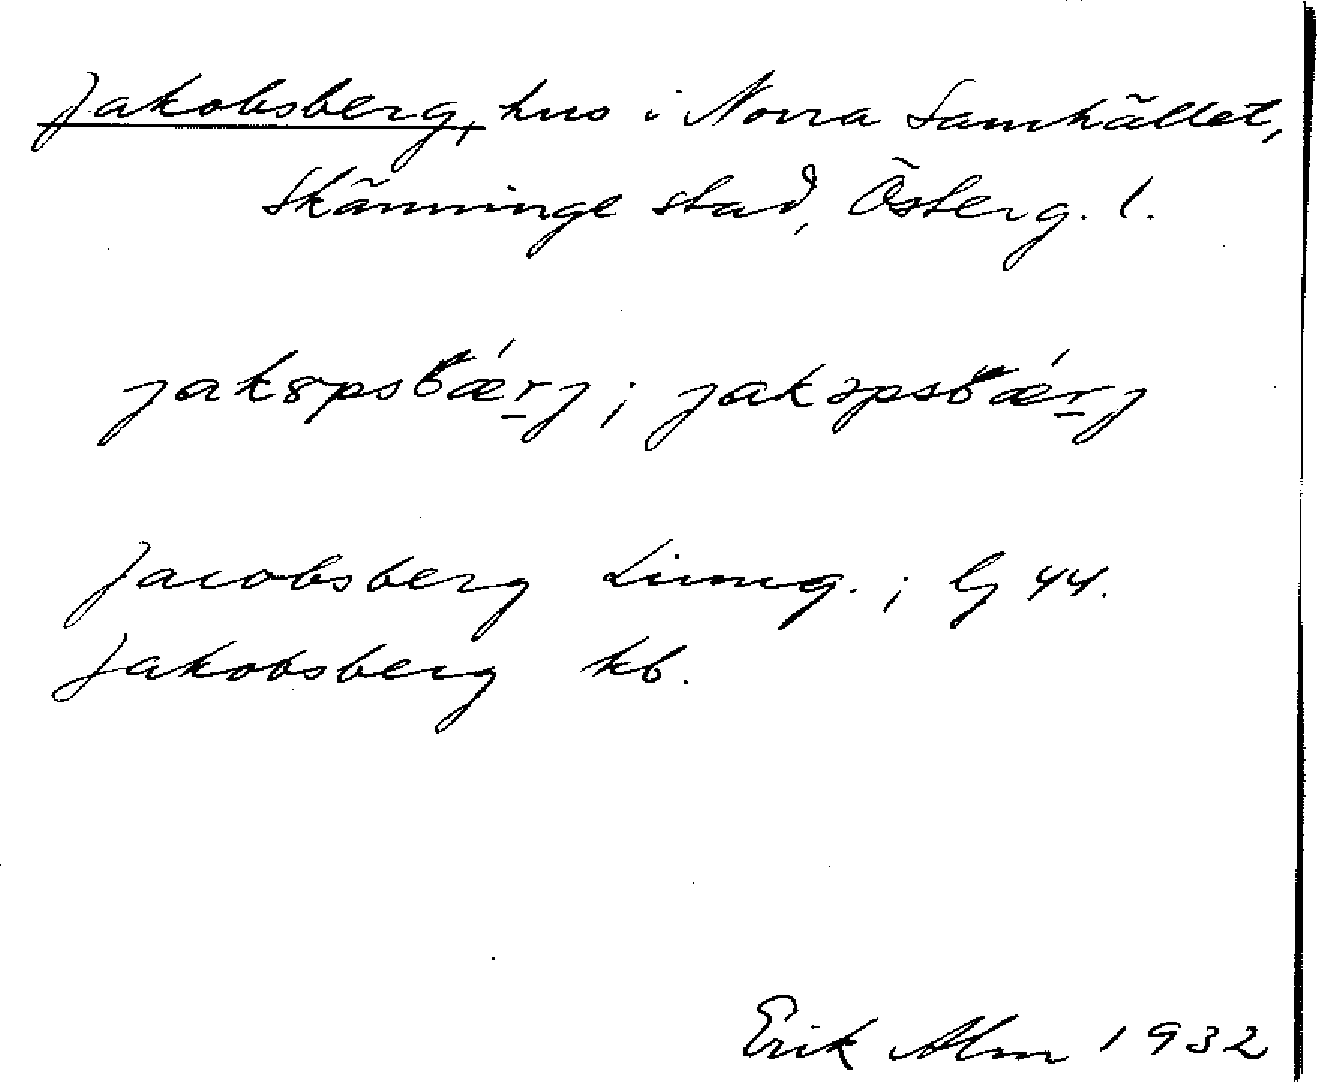 Jakobsberg, hus i Norra Samhället,
Skänninge stad, Österg. l.
jak8psbǽrj; jakɔpsbǽrj
Jacobsberg Ljung.; Lj 44.
Jakobsberg kb.
Erik Alm 1932